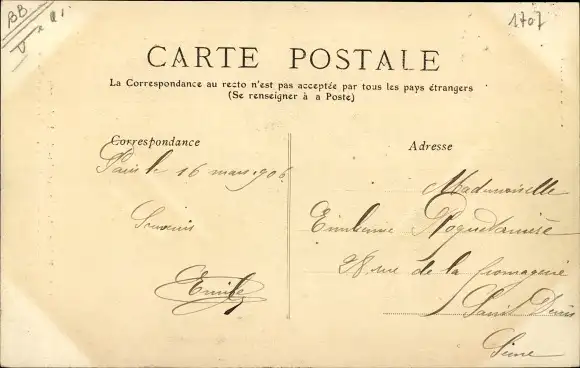 BB
1707
CARTE POSTALE
La Correspondance au recto n'est pas acceptée par tous les pays étrangers
(Se renseigner à a Poste)
Correspondance
Paris le 16 mars 906
Souvenir
Emile
Adresse
Mademoiselle
Emilienne
rue de la fromagerie
Saint Denis
Seine